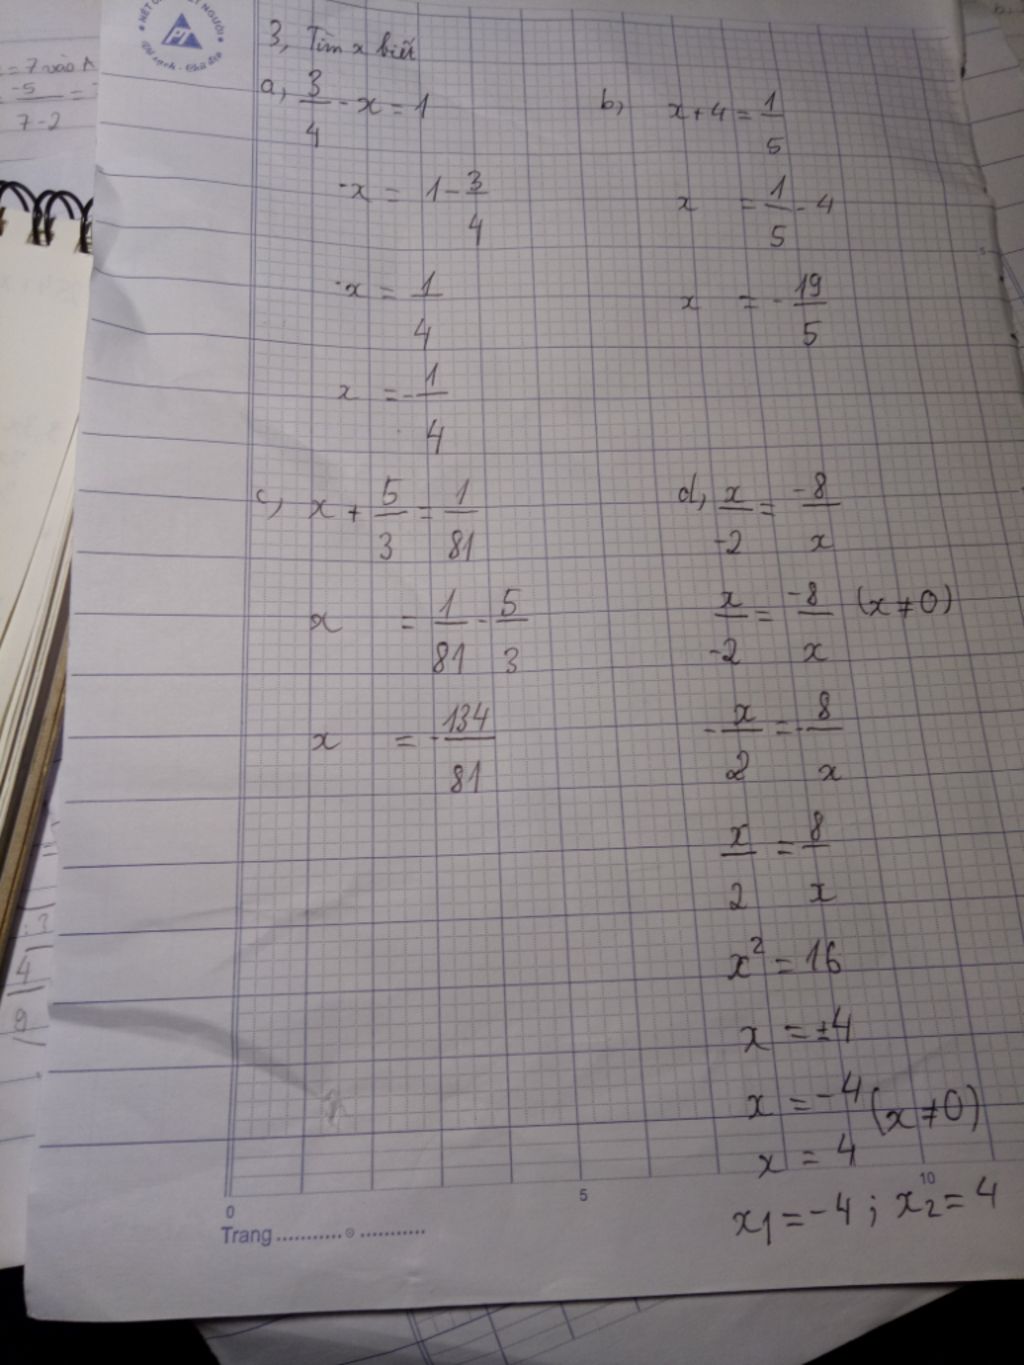 = 7 vào A
-5/(7-2) =
3, Tìm x biết
a, 3/4 - x = 1
-x = 1 - 3/4
-x = 1/4
x = -1/4
b, x + 4 = 1/5
x = 1/5 - 4
x = -19/5
c, x + 5/3 = 1/81
x = 1/81 - 5/3
x = -134/81
d, x/-2 = -8/x
x/-2 = -8/x (x ≠ 0)
-x/2 = -8/x
x/2 = 8/x
x² = 16
x = ±4
x = -4 (x ≠ 0)
x = 4
x1 = -4 ; x2 = 4
0 5 10
Trang